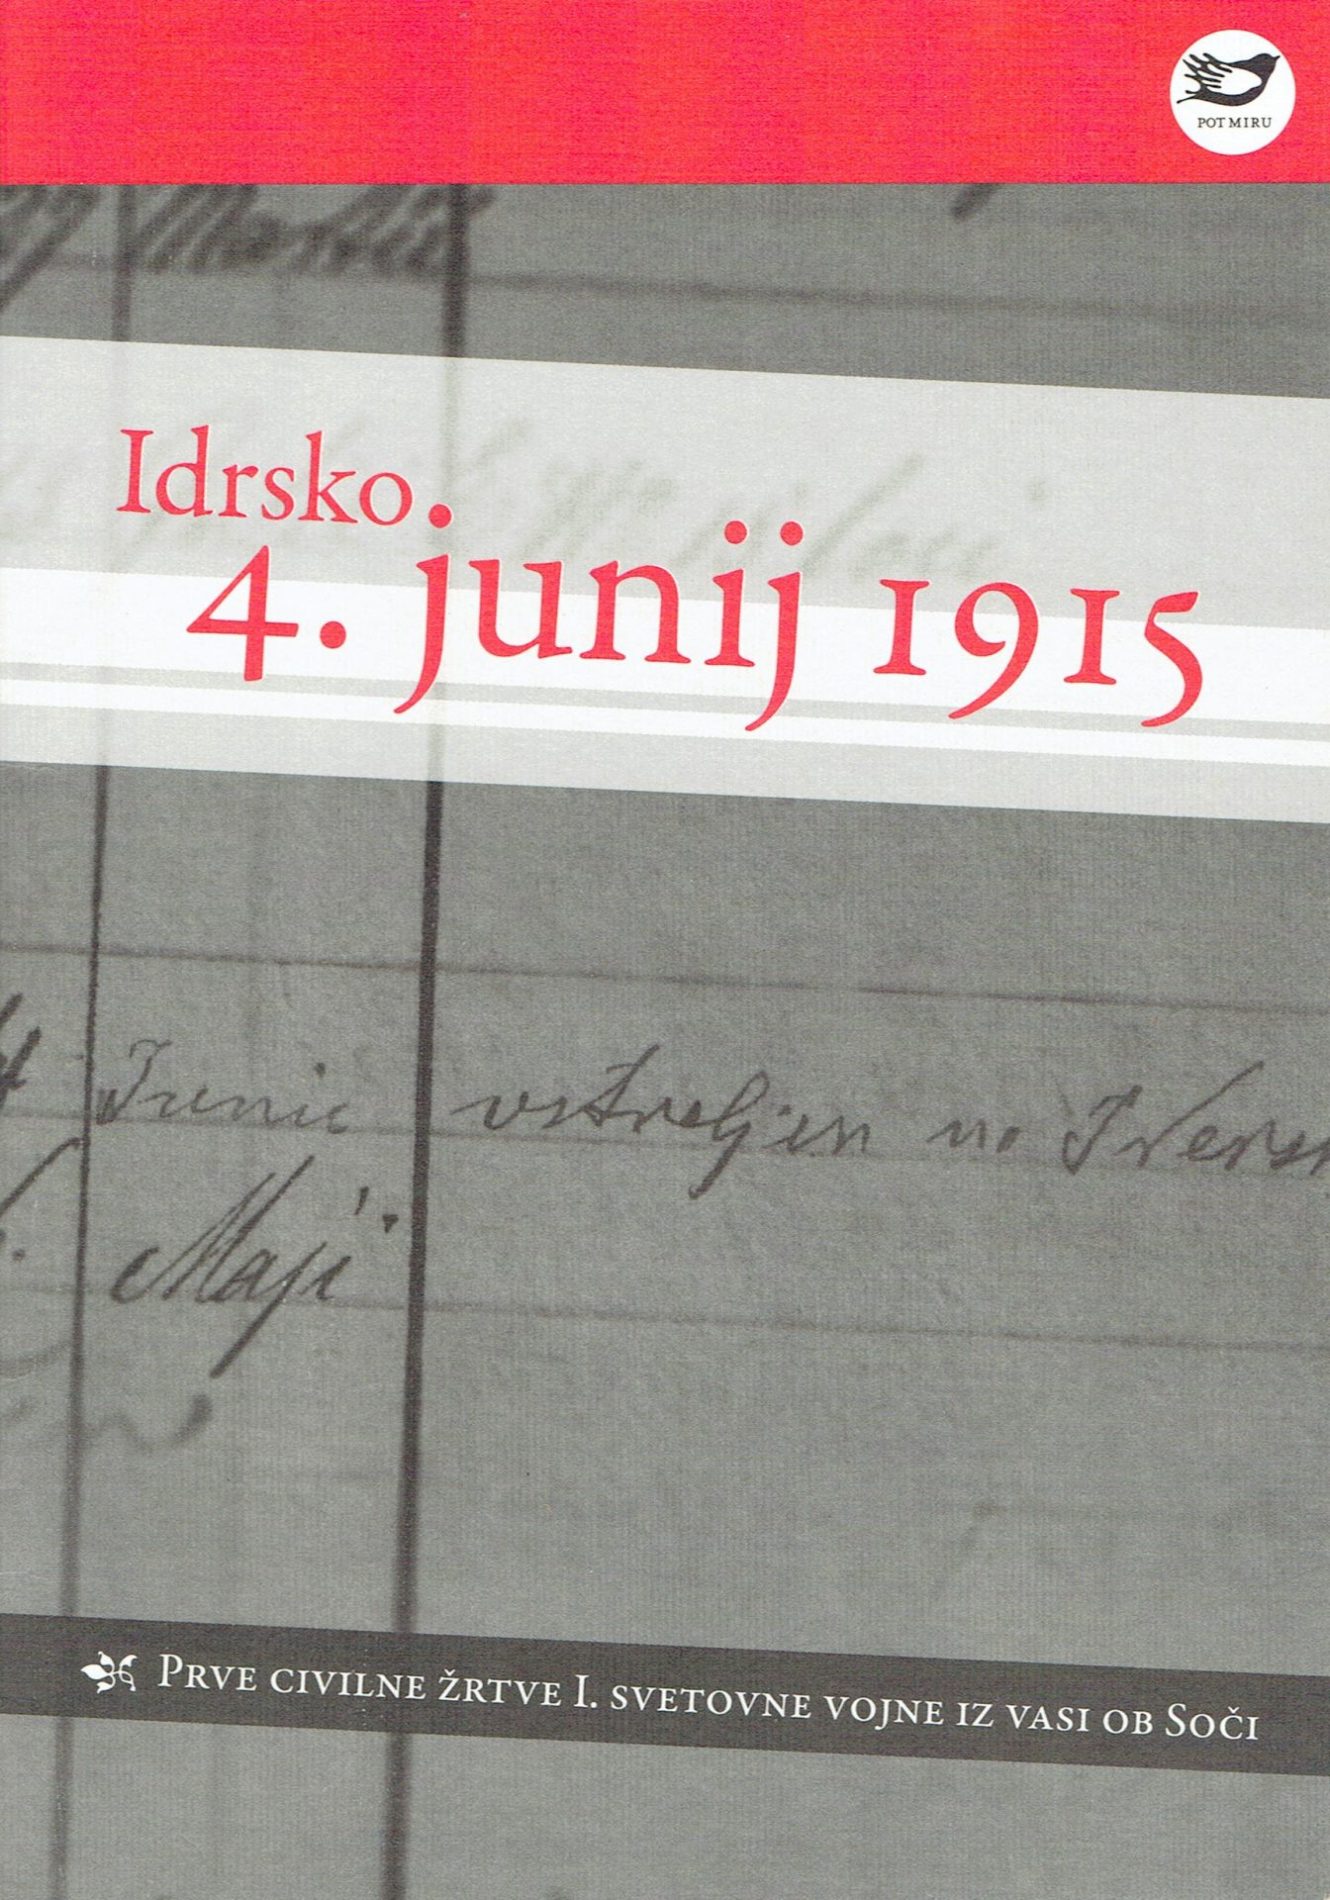 POT MIRU
Idrsko,
4. junij 1915
4 Junii vstreljen na
Maji
PRVE CIVILNE ŽRTVE I. SVETOVNE VOJNE IZ VASI OB SOČI